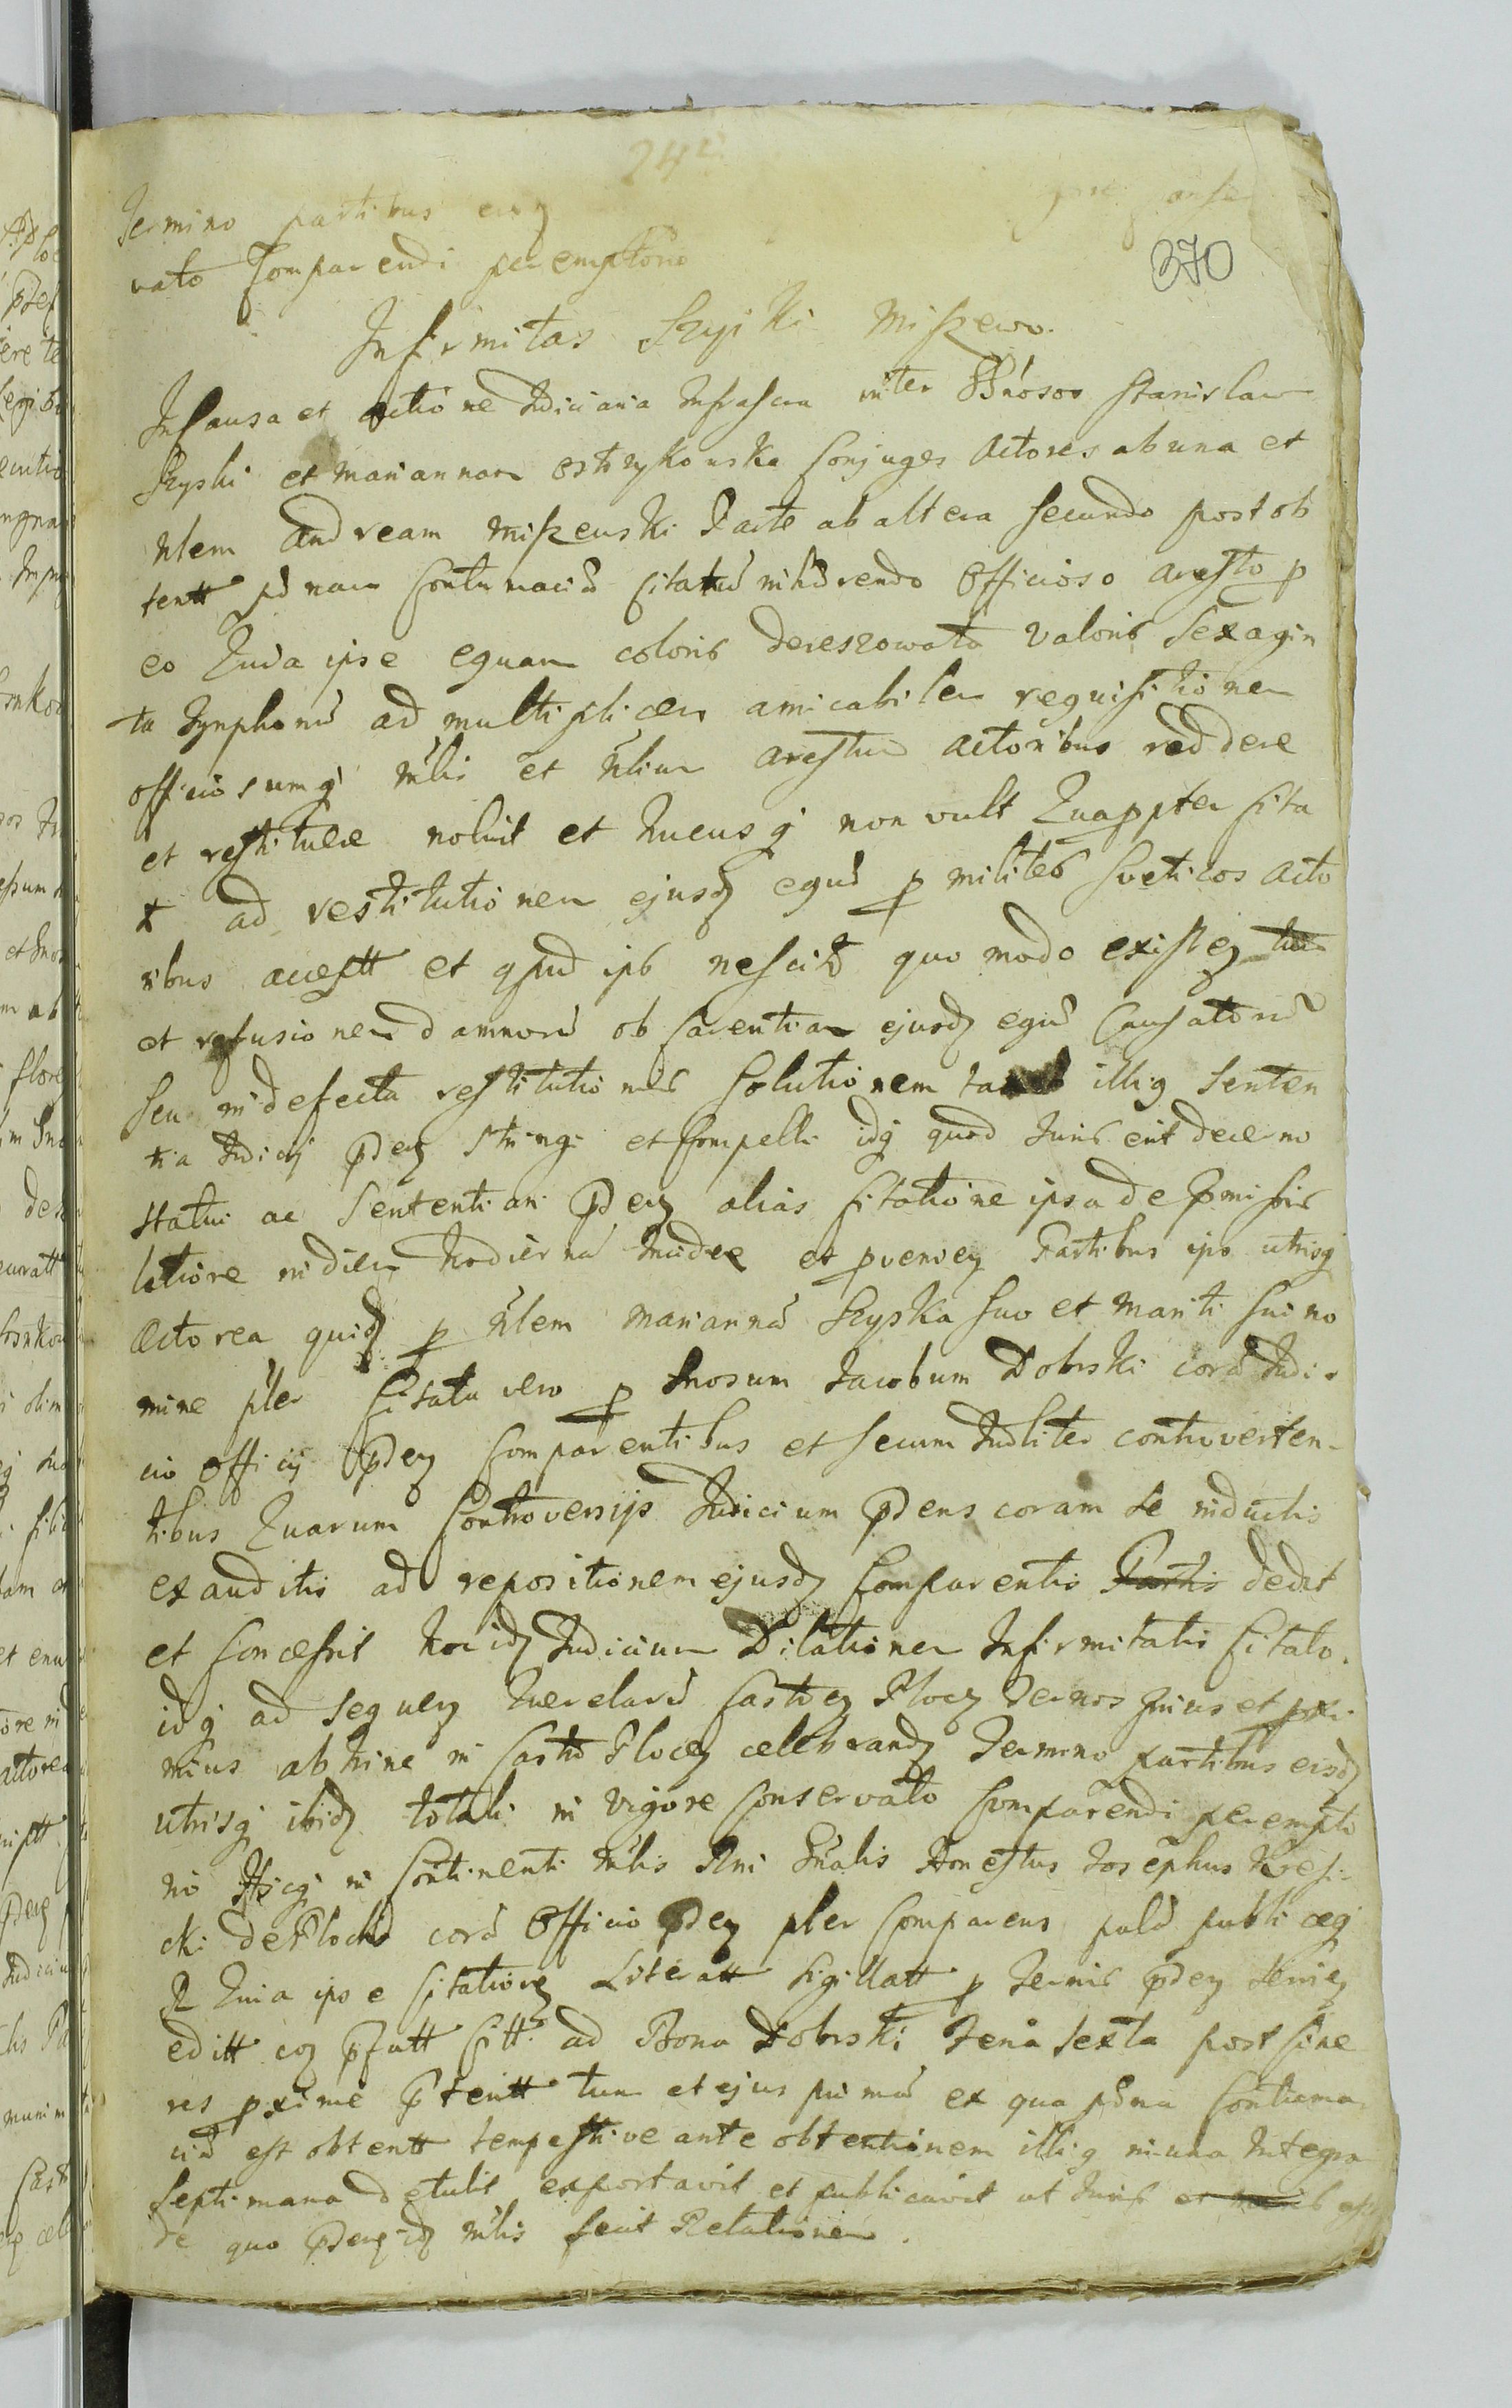 Termino partibus eisdꝫ
370
vato Comparendi peremptorio
Infirmitas Szyski Miszewo.
In Causa et actione Judiciaria Infrascra inter Gnosos Stanislaum
Szyski et Mariannam Ostrzykowska Conjuges Actores ab una et
Nlem Andream Miszewski Parte ab altera Secundo post ob
tentt pd nam Contumaciā Citatū officioso aresto ꝑ
eo Quia ipse equam coloris dereszowata Valoris Sexagin
ta Tynphonū ad multiplicem amicabilem requisitionem
officiosumqꝫ Mlis et Nlium arestum Actoribus reddere
et restituere noluit et hucusqꝫ non vult Quappter Cita
t ad restitutionem ejusdꝫ equā ꝑ milites Sveticos Acto
ribus acceptt et apud ips nescitꝰ quo modo existeꝫ
et refusionem damnorū ob Carentiam ejusdꝫ equā Causatorū
Seu in defectu restitutionis Solutionem illiꝰ Senten
tia Judicij pdenꝫ stringi et Compelli idqꝫ quod Juris erit decerno
Statui ac Sententiari pdenꝫ alias Citatione ipsa de pmissis
latiore in diem hodiernā et proveneꝫ Partibus ips utrisqꝫ
Actorea quidꝫ ꝑ Nlem Mariannā Szyska Suo et Mariti Sui no
mine pler Citata vero ꝑ Gnosum Jacobum Dobrski corā Judi
cio Officij pdenꝫ Comparentibus et Secum Judliter controverten-
tibus Quarum Controversijs Judicium pdens coram Se inductis
exauditis ad repositionem ejusdꝫ Comparentis Partis dedit
et Concessit hoc idꝫ Judicium Dilationem Infirmitatis Citato.
idqꝫ ad Sequenꝫ Querelarū Castrenꝫ Plocenꝫ Termos huius et proxi
mius abhinc in Castro Plocenꝫ celebrandꝫ Termino partibus eisdꝫ
utrisqꝫ ibidꝫ totali in vigore Conservato Comparendi perempto
rio Hicqꝫ in Continenti Mlis Rni Gnalis Honestus Josephus
cki de Plocko corā Officio pdenꝫ pler Comparens palā publiceqꝫ
R Quia ipse Citationꝫ Literatt Sigillatt ꝑ Termis pdenꝫ
editt coꝫ pfatt Citt ad Bona Dobrski Feria Sexta post Cine
res ꝓxime pteritt tum et ejus primā ex qua pdna Contuma
ciā est obtentt tempestive ante obtentionem illiꝰ in una Integra
Septimana detulit exportavit et publicavit ut Juris est
de quo pdenꝫ idꝫ Mlis fecit Relationem.